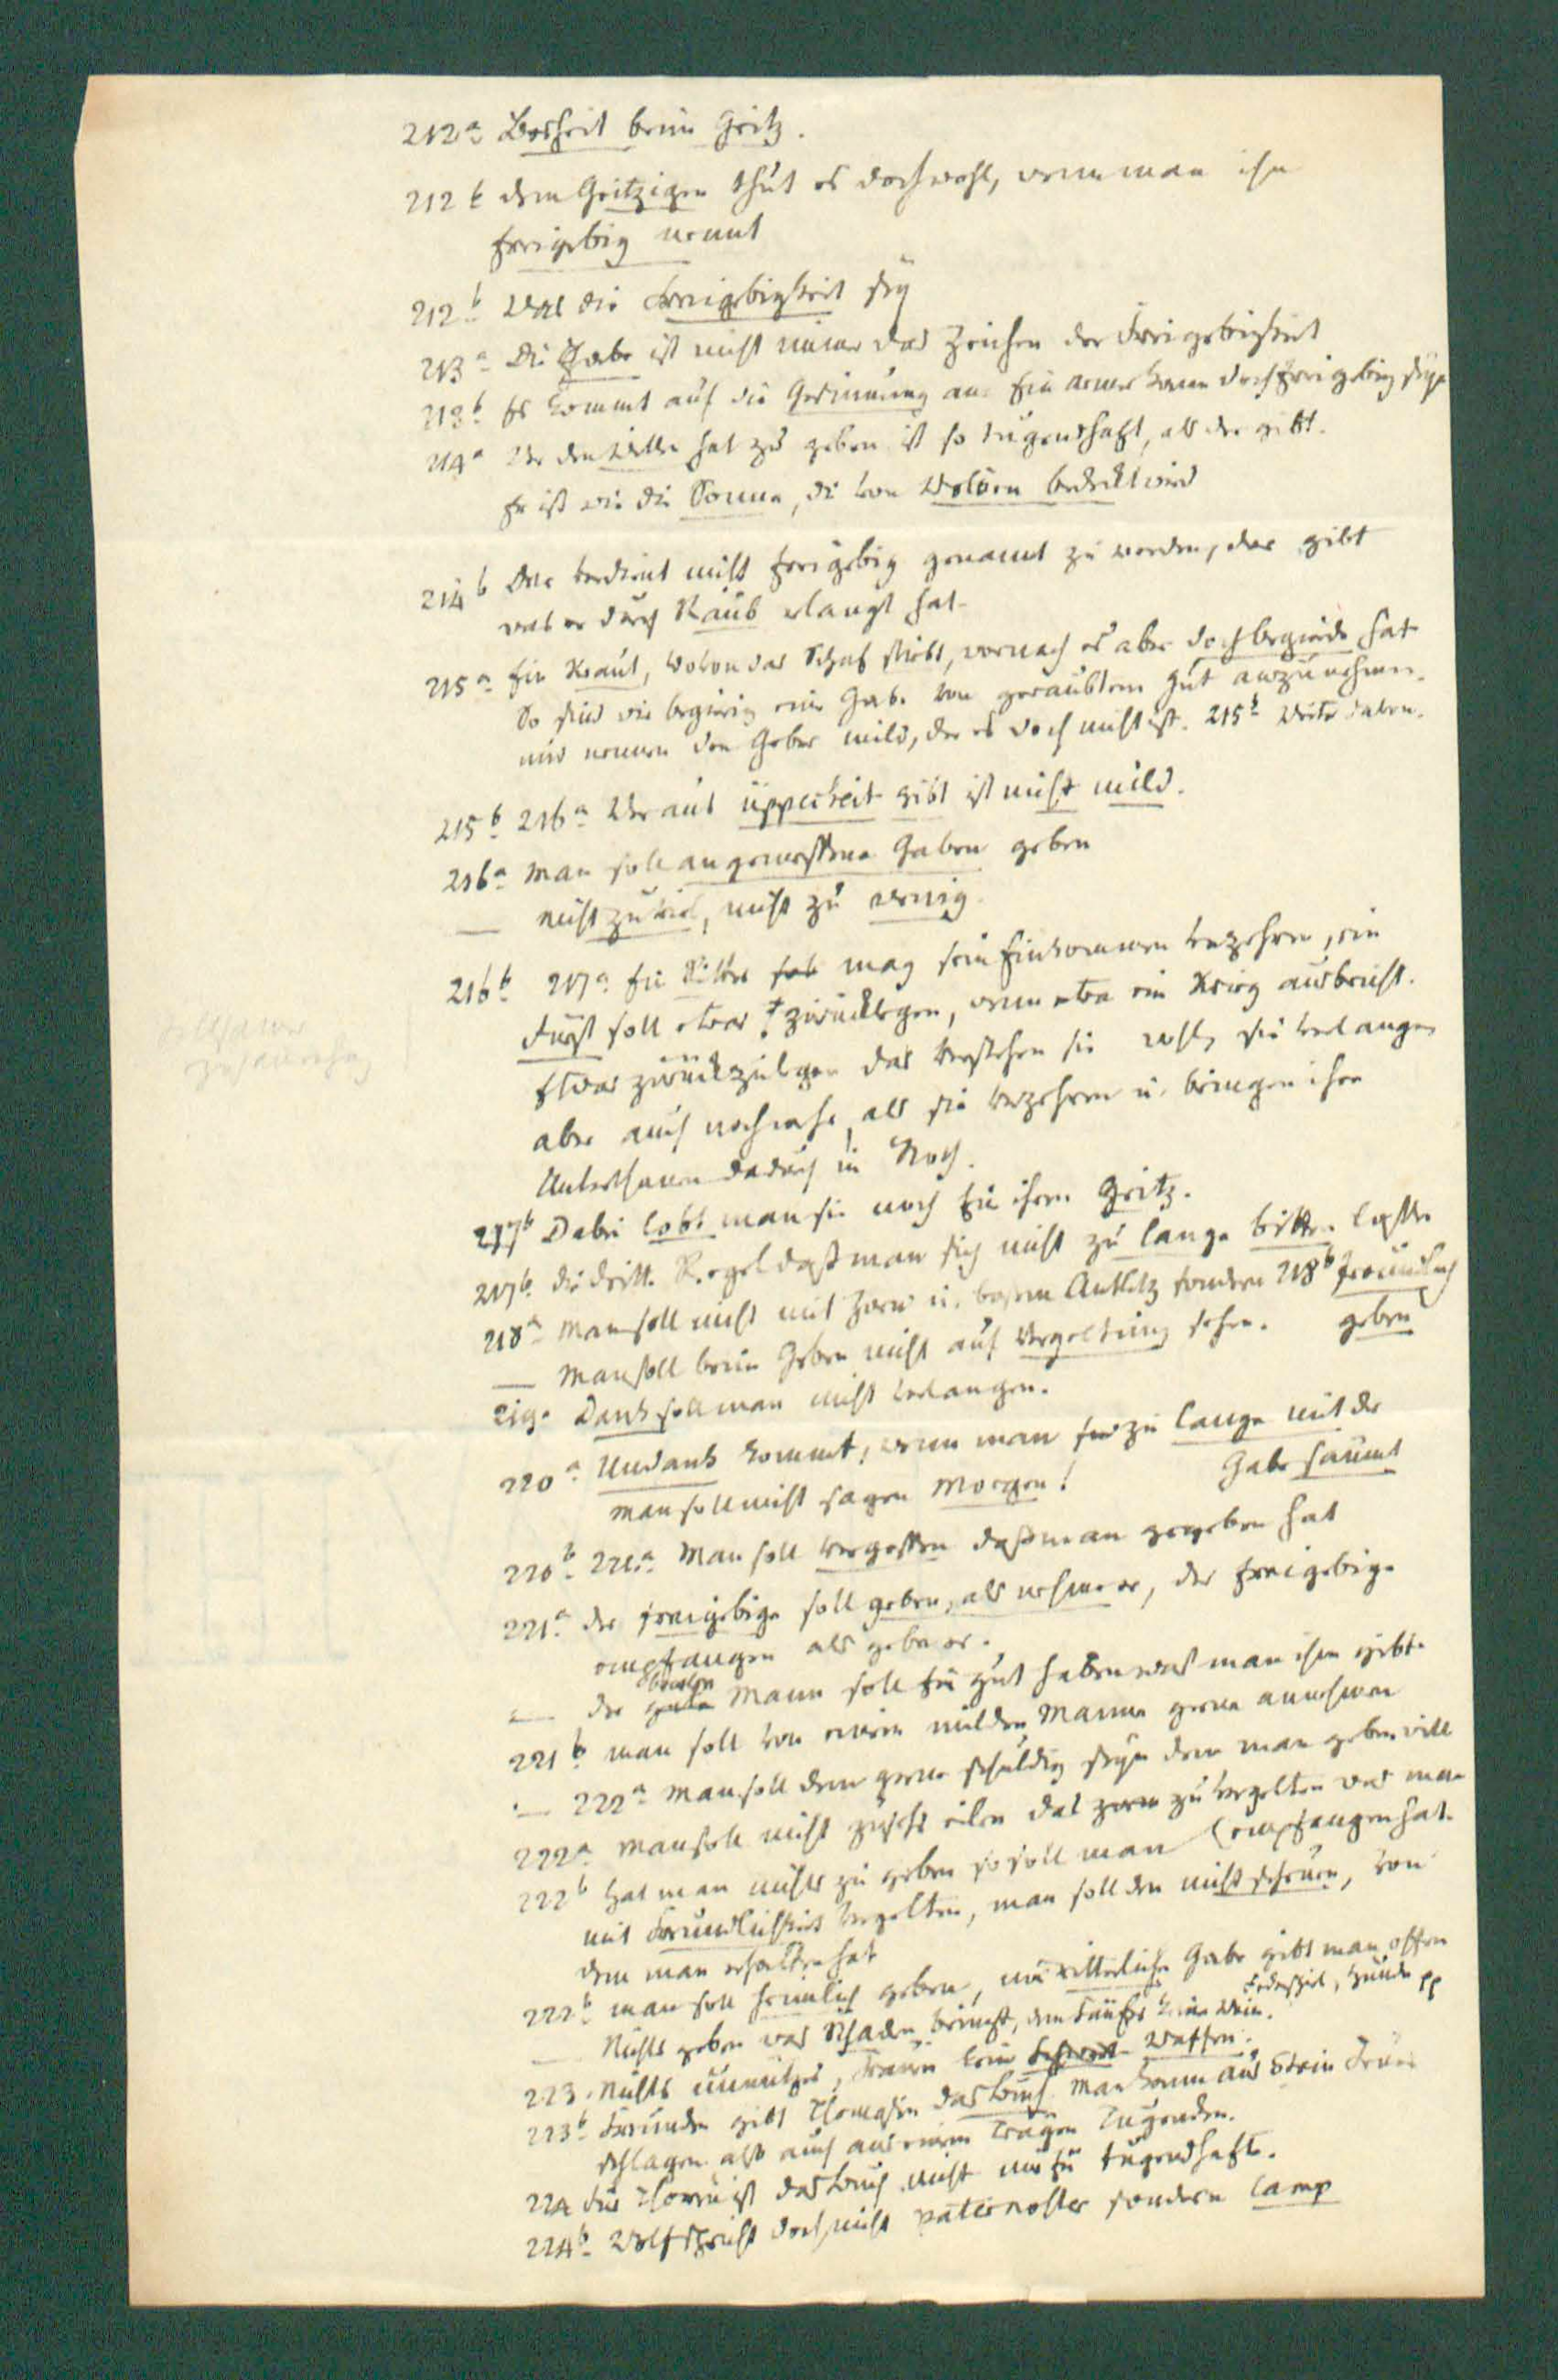 212a Bosheit beim Geitz.
212b dem Geitzigen thut es doch wohl, wenn man ihn
freigebig nennt
212b Was die Freigebigkeit sey
213a Die Gabe ist nicht immer das Zeichen der Freigebigkeit
213b Es kommt auf die Gesinnung an. Ein armer kann doch freigebig seyn
214a Wer den Willen hat zu geben ist so tugendhaft, als der gibt.
Er ist wie die Sonne, die von Wolken bedeckt wird
214b Der verdient nicht freigebig genannt zu werden, der gibt
was er durch Raub erlangt hat.
215a Ein Kraut, wovon das Schaf stirbt, wornach es aber doch begierde hat
So sind wir begierig eine Gabe von geraubtem Gut anzunehmen.
und nennen den Geber mild, der es doch nicht ist. 215b Weiter davon.
215b 216a Wer aus üppikeit gibt ist nicht mild.
216a Man soll angemessene Gaben geben
— nicht zu viel, nicht zu wenig.
216b 217a Ein Ritter mag sein Einkommen verzehren, ein
Fürst soll etwas zurücklegen, wenn etwa ein Krieg ausbricht.
Etwas zurückzulegen das verstehen sie wohl, sie verlangen
aber auch noch mehr, als sie verzehren u. bringen ihre
Unterthanen dadurch in Noth.
217b Dabei lobt man sie noch für ihren Geitz.
217b die dritte Regel daß man sich nicht zu lange bitten lasse
218a Man soll nicht mit Zorn u. bösem Antlitz sondern 218b freundlich
geben
— Man soll beim Geben nicht auf Vergeltung sehen.
219a Dank soll man nicht verlangen.
220a Undank kommt, wenn man zu lange mit der
Gabe säumt
man soll nicht sagen Morgen!
220b 221a Man soll vergessen daß man gegeben hat
221a der freigebige soll geben, als nehme er, der freigebige
empfangen als gebe er.
— der Mann soll für gut haben was man ihm gibt.
221b man soll von einem milden Manne gerne annehmen
— 222a Man soll dem gerne schuldig seyn dem man geben will
222a Man soll nicht zu sehr eilen das zu vergelten was man
(empfangen hat.
222b Hat man nichts zu geben so soll man
mit Freundlichkeit vergelten, man soll den nicht scheuen, von
dem man erhalten hat
222b man soll heimlich geben, nur ritterliche Gabe gibt man offen
Federspiel, Hunde pp
— Nichts geben was Schaden bringt, dem Säufer keinen Wein.
223. Nichts unnützes, Frauen keine Waffen.
223b Freunden gibt Thomasin das Buch. Man kann aus Stein Feuer
schlagen also auch aus einem Trägen Tugenden.
224 Für Thoren ist das Buch nicht nur für tugendhafte.
224b Wolf spricht doch nicht paternoster sondern lamp